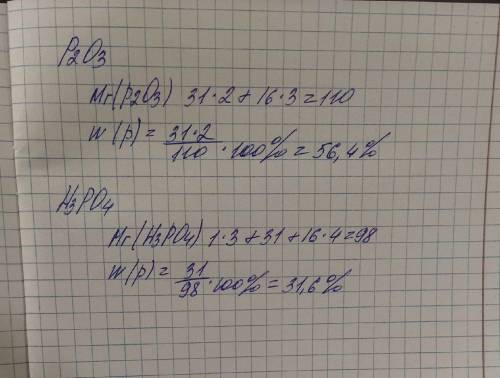 P2O3
Mr(P2O3) 31·2+16·3=110
w(p)= 31·2/110 ·100%=56,4%
H3PO4
Mr(H3PO4) 1·3+31+16·4=98
w(p)= 31/98 ·100%=31,6%